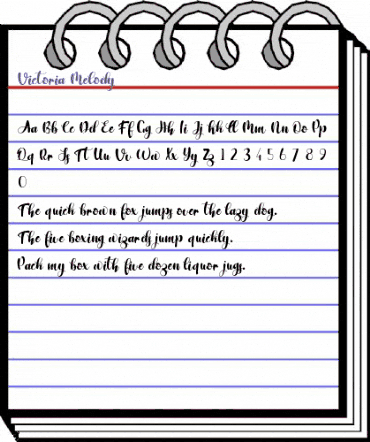 Victoria Melody
Aa Bb Cc Dd Ee Ff Gg Hh Ii Jj Kk Ll Mm Nn Oo Pp
Qq Rr Ss Tt Uu Vv Ww Xx Yy Zz 1 2 3 4 5 6 7 8 9
0
The quick brown fox jumps over the lazy dog.
The five boxing wizards jump quickly.
Pack my box with five dozen liquor jugs.